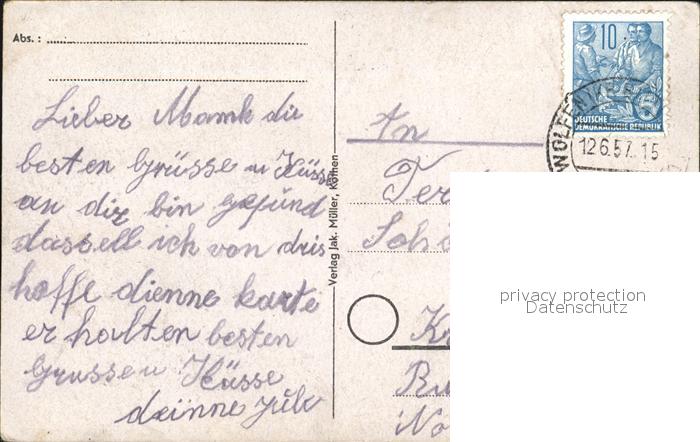 Abs. :
Lieber Mamk dir
besten Grüsse u Küsse
an dir bin gesund
dassell ich von dris
hoffe dienne karte
er halten besten
Grussen u Küsse
deinne
Verlag Jak. Müller, Köthen
An
10
DEUTSCHE
DEMOKRATISCHE REPUBLIK
12.6.57.15
privacy protection
Datenschutz